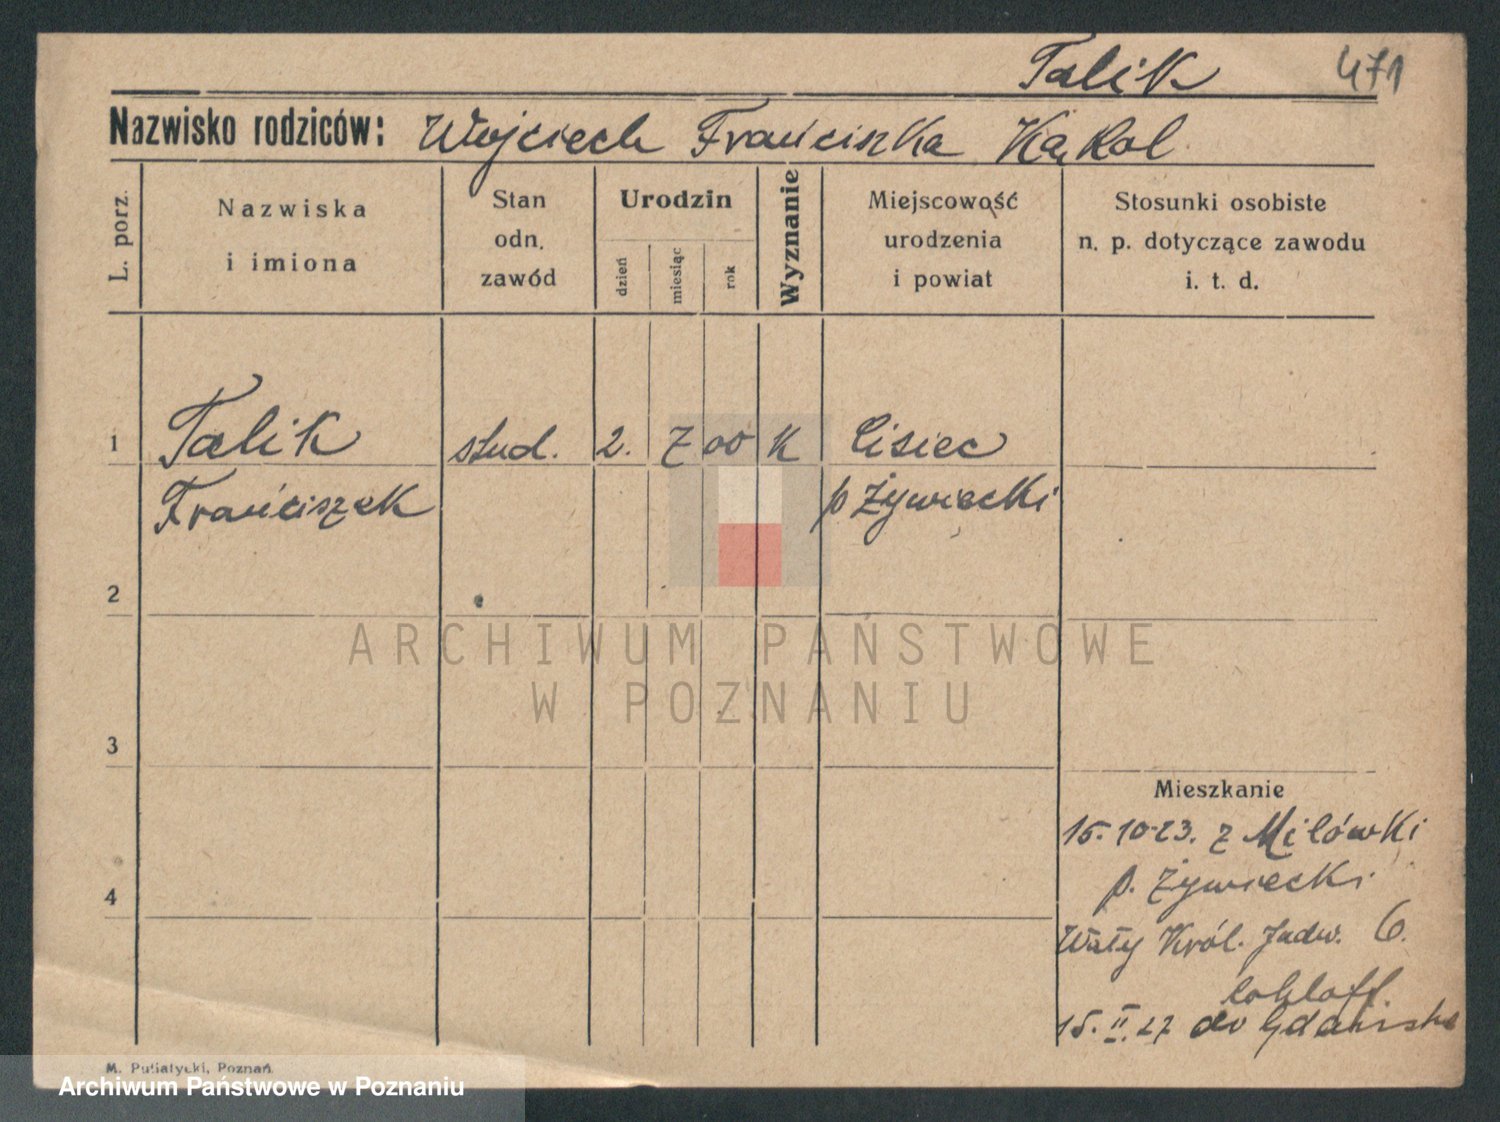 Talik 471
Nazwisko rodziców: Wojciech Franciszka Kąkol
L. porz.
Nazwiska
i imiona
Stan
odn.
zawód
Urodzin
dzień
miesiąc
rok
Wyznanie
Miejscowość
urodzenia
i powiat
Stosunki osobiste
n. p. dotyczące zawodu
i. t. d.
1 Talik stud. 2. 7 00 K Cisiec
Franciszek p Żywiecki
2
ARCHIWUM PAŃSTWOWE
W POZNANIU
3
Mieszkanie
15.10.23. z Milówki
p. Żywiecki
4
Wały Król. Jadw. 6.
15.II.27 do Gdańska
M. Putiatycki, Poznań.
Archiwum Państwowe w Poznaniu